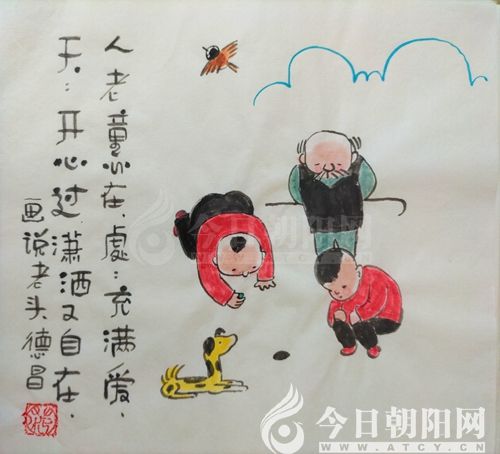 人老童心在,處:充满爱,
天:开心过,潇洒又自在.
画说老头德昌
今日朝阳网
今日朝阳网
WWW.ATCY.CN